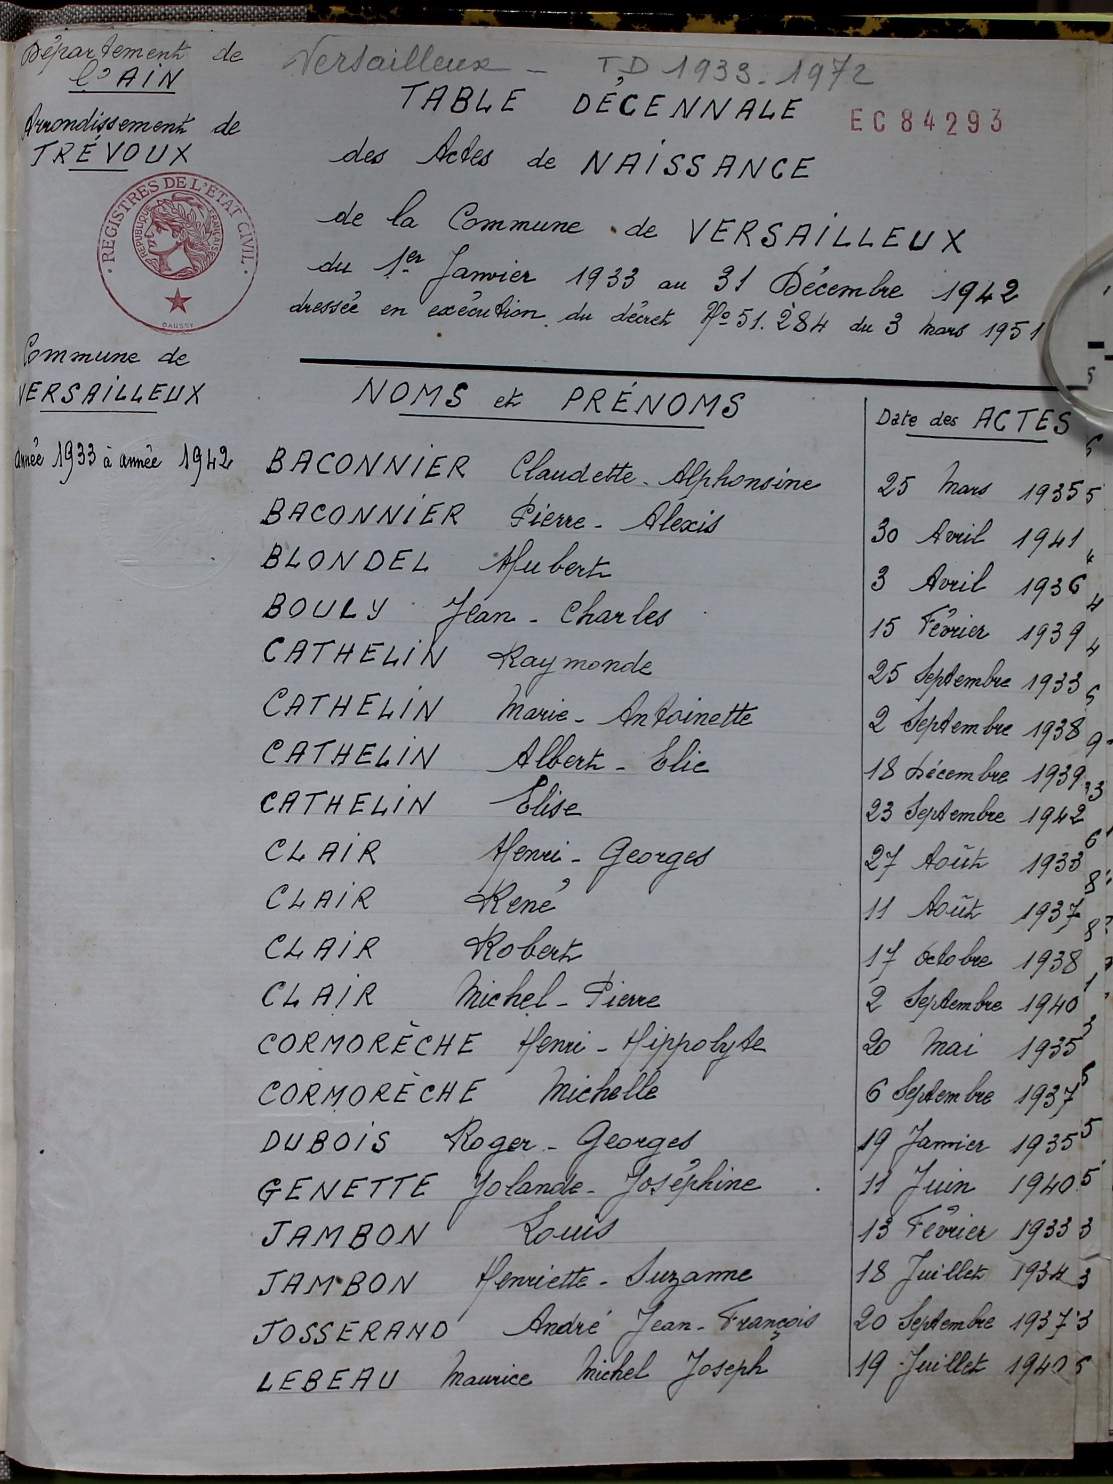 Département de
l'AIN
Arrondissement de
TRÉVOUX
REGISTRES DE L'ETAT CIVIL
REPUBLIQUE FRANÇAISE
DAUSSY
Commune de
VERSAILLEUX
année 1933 à année 1942
Versailleux - TD 1933-1972
TABLE DÉCENNALE
EC84293
des Actes de NAISSANCE
de la Commune de VERSAILLEUX
du 1er Janvier 1933 au 31 Décembre 1942
dressée en exécution du décret No 51.284 du 3 mars 1951
NOMS et PRÉNOMS Date des ACTES
BACONNIER Claudette-Alphonsine 25 Mars 1935
BACONNIER Pierre-Alexis 30 Avril 1941
BLONDEL Hubert 3 Avril 1936
BOULY Jean-Charles 15 Février 1939
CATHELIN Raymonde 25 Septembre 1933
CATHELIN Marie-Antoinette 2 Septembre 1938
CATHELIN Albert-Elie 18 Décembre 1939
CATHELIN Elise 23 Septembre 1942
CLAIR Henri-Georges 27 Août 1933
CLAIR René 11 Août 1937
CLAIR Robert 17 Octobre 1938
CLAIR Michel-Pierre 2 Septembre 1940
CORMORÈCHE Henri-Hippolyte 20 Mai 1935
CORMORÈCHE Michelle 6 Septembre 1937
DUBOIS Roger-Georges 19 Janvier 1935
GENETTE Yolande-Joséphine 11 Juin 1940
JAMBON Louis 13 Février 1933
JAMBON Henriette-Suzanne 18 Juillet 1934
JOSSERAND André Jean-François 20 Septembre 1937
LEBEAU Maurice Michel Joseph 19 Juillet 1940